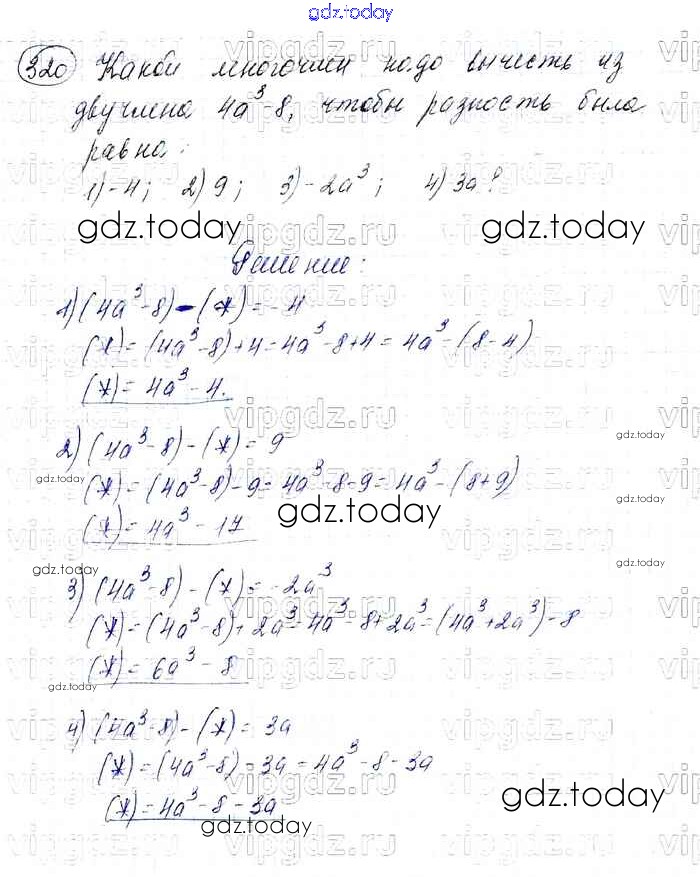 gdz.today
320 Какой многочлен надо вычесть из
двучлена 4a³-8, чтобы разность была
равна:
1) -4; 2) 9; 3) -2a³; 4) 3a?
gdz.today gdz.today
Решение:
1) (4a³-8) - (*) = -4
(*) = (4a³-8)+4 = 4a³-8+4 = 4a³-(8-4)
(*) = 4a³-4.
gdz.today
2) (4a³-8) - (*) = 9
gdz.today
(*) = (4a³-8)-9 = 4a³-8-9 = 4a³-(8+9)
gdz.today
(*) = 4a³-17
gdz.today
gdz.today
gdz.today
3) (4a³-8) - (*) = -2a³
(*) = (4a³-8)+2a³=4a³-8+2a³=(4a³+2a³)-8
(*) = 6a³-8
gdz.today
4) (4a³-8) - (*) = 3a
(*) = (4a³-8)-3a = 4a³-8-3a
(*) = 4a³-8-3a
gdz.today
gdz.today
vipgdz.ru